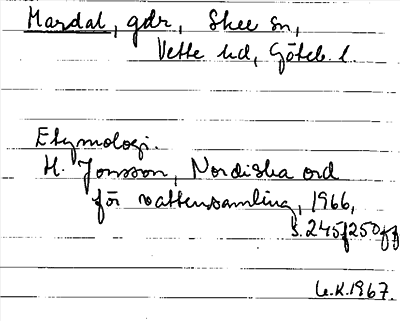 Mardal, gdr, Skee sn,
Vette hd, Göteb. l.
Etymologi.
H. Jonsson, Nordiska ord
för vattensamling, 1966,
s. 245f 250ff
1967.